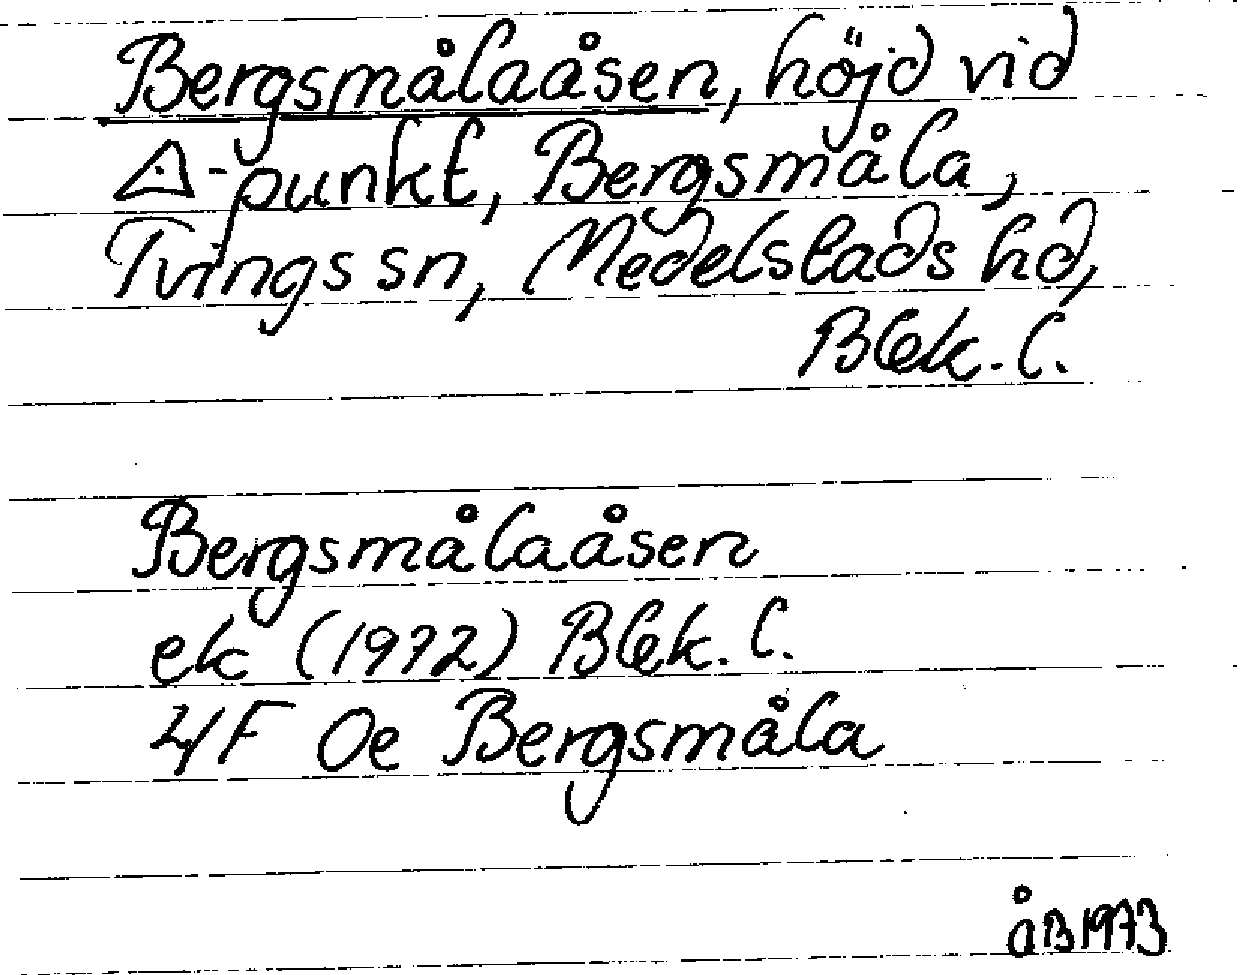 Bergsmålaåsen, höjd vid
△-punkt, Bergsmåla,
Tvings sn, Medelstads hd,
Blek. l.
Bergsmålaåsen
ek (1972) Blek. l.
4F 0e Bergsmåla
åB 1973